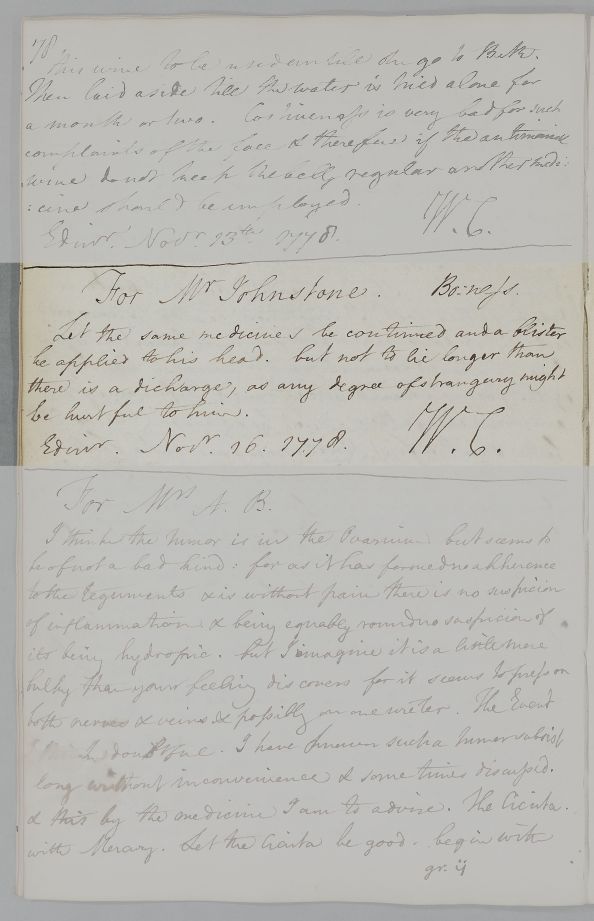 78
This wine to be used until he go to Bath.
then laid aside till the water is tried alone for
a month or two. Costiveness is very bad for such
complaints of the face & therefore if the antimonial
wine do not keep the belly regular another medi:
:cine should be employed.
Edinr. Novr. 13th 1778. W.C.
For Mr Johnstone. Bo:ness.
Let the same medicines be continued and a blister
be applied to his head. but not to lie longer than
there is a dicharge, as any degree of strangury might
be hurtful to him.
Edinr. Novr. 16. 1778. W.C.
For Mrs A. B.
I think the tumor is in the Ovarium but seems to
be of not a bad kind: for as it has formed no adherence
to the teguments & is without pain there is no suspicion
of inflammation & being equably round no suspicion of
its being hydropic. but I imagine it is a little more
bulky than your feeling discovers for it seems to press on
both nerves & veins & possibly on one ureter. The Event
I think doubtful. I have known such a tumor subsist
long without inconvenience & sometimes discussed.
& this by the medicine I am to advise. The Cicuta.
with Mercury. Let the Cicuta be good. begin with
gr. ij